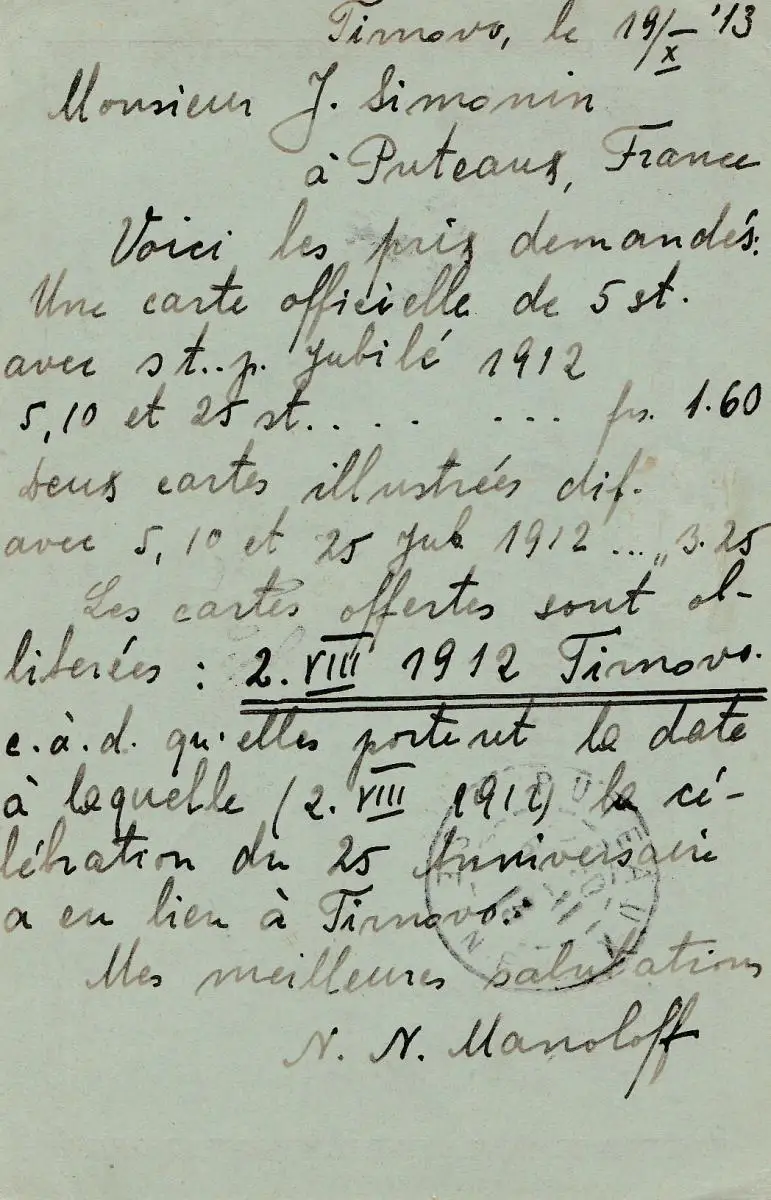 Tirnovo, le 19/X '13
Monsieur J. Simonin
à Puteaux, France
Voici les prix demandés:
Une carte officielle de 5 st.
avec st..p. Jubilé 1912
5,10 et 25 st.... ... frs. 1.60
Deux cartes illustrées dif.
avec 5, 10 et 25 Jub 1912 ... „ 3.25
Les cartes offertes sont ob-
literées : 2. VIII 1912 Tirnovo.
c.à.d. qu'elles portent la date
à laquelle (2. VIII 1912) la cé-
lébration du 25 Anniversaire
a eu lieu à Tirnovo.
Mes meilleures salutations
N. N. Manoloff
PUTEAUX